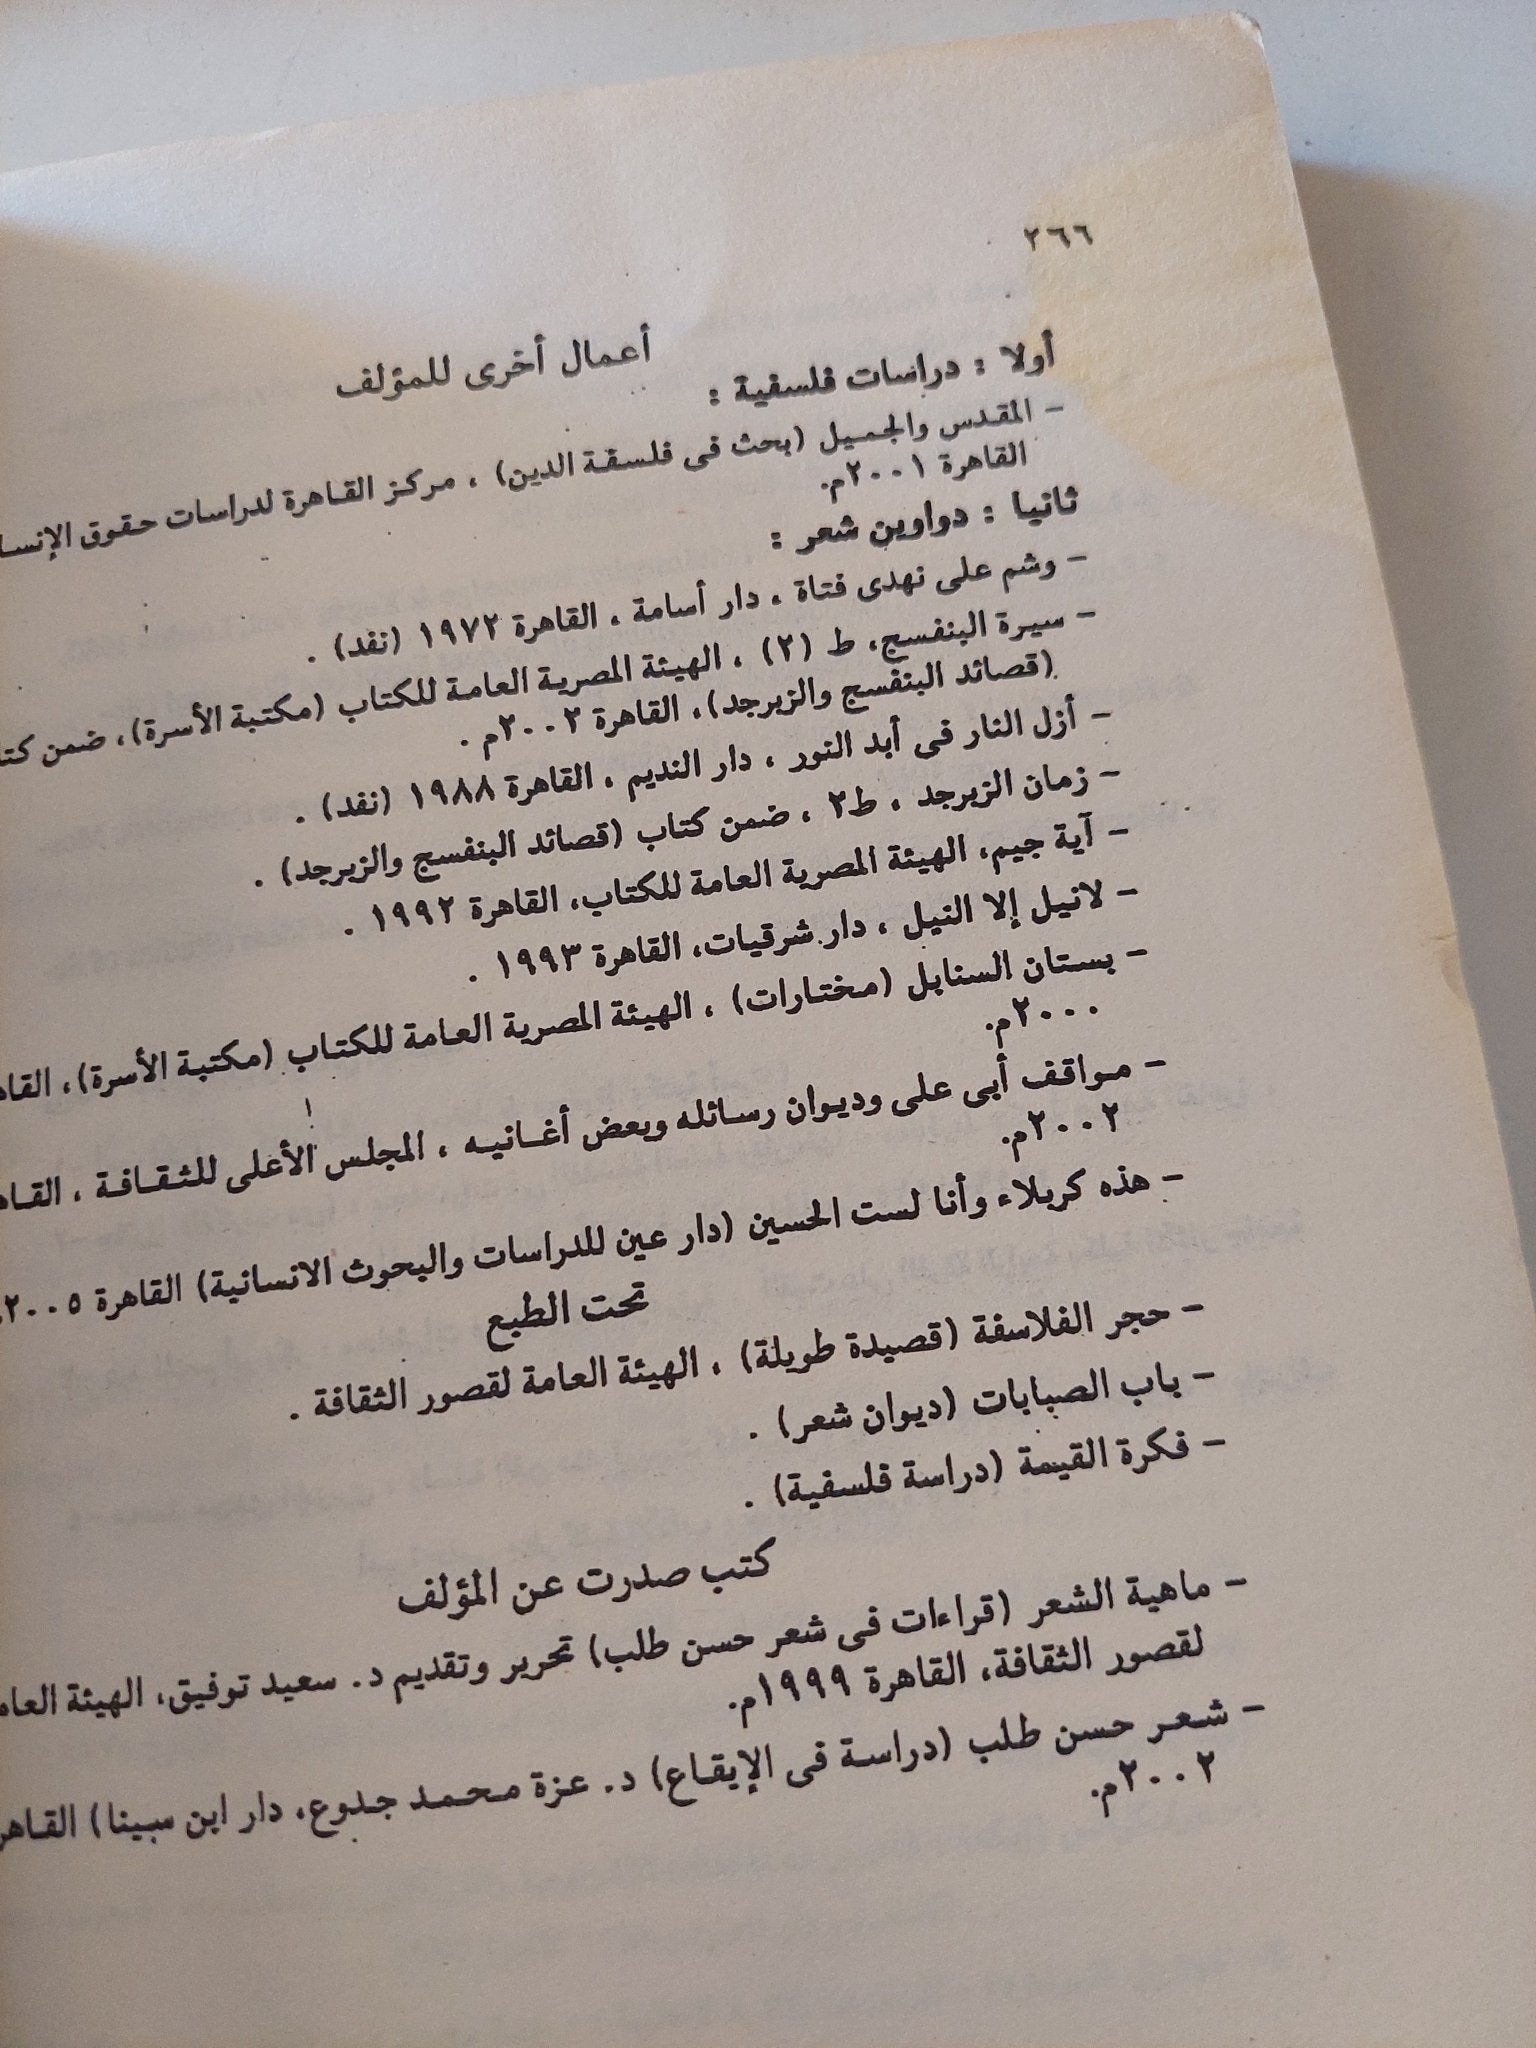 ٢٦٦
أعمال أخرى للمؤلف
أولا : دراسات فلسفية :
- المقدس والجميل (بحث فى فلسفة الدين) ، مركز القاهرة لدراسات حقوق الإنسا
القاهرة ٢٠٠١م.
ثانيا : دواوين شعر :
- وشم على نهدى فتاة ، دار أسامة ، القاهرة ١٩٧٢ (نفد) .
- سيرة البنفسج، ط (٢) ، الهيئة المصرية العامة للكتاب (مكتبة الأسرة)، ضمن كتا
(قصائد البنفسج والزبرجد)، القاهرة ٢٠٠٢م .
- أزل النار فى أبد النور ، دار النديم ، القاهرة ١٩٨٨ (نفد) .
- زمان الزبرجد ، ط٢ ، ضمن كتاب (قصائد البنفسج والزبرجد) .
- آية جيم، الهيئة المصرية العامة للكتاب، القاهرة ١٩٩٢ .
- لانيل إلا النيل ، دار شرقيات، القاهرة ١٩٩٣ .
- بستان السنابل (مختارات) ، الهيئة المصرية العامة للكتاب (مكتبة الأسرة)، القاه
٢٠٠٠م.
- مواقف أبى على وديوان رسائله وبعض أغانيه ، المجلس الأعلى للثقافة ، القاه
٢٠٠٢م.
- هذه كربلاء وأنا لست الحسين (دار عين للدراسات والبحوث الانسانية) القاهرة ٢٠٠٥
تحت الطبع
- حجر الفلاسفة (قصيدة طويلة) ، الهيئة العامة لقصور الثقافة .
- باب الصبابات (ديوان شعر) .
- فكرة القيمة (دراسة فلسفية) .
كتب صدرت عن المؤلف
- ماهية الشعر (قراءات فى شعر حسن طلب) تحرير وتقديم د. سعيد توفيق، الهيئة العام
لقصور الثقافة، القاهرة ١٩٩٩م.
- شعر حسن طلب (دراسة فى الإيقاع) د. عزة محمد جدوع، دار ابن سينا) القاهر
٢٠٠٢م.